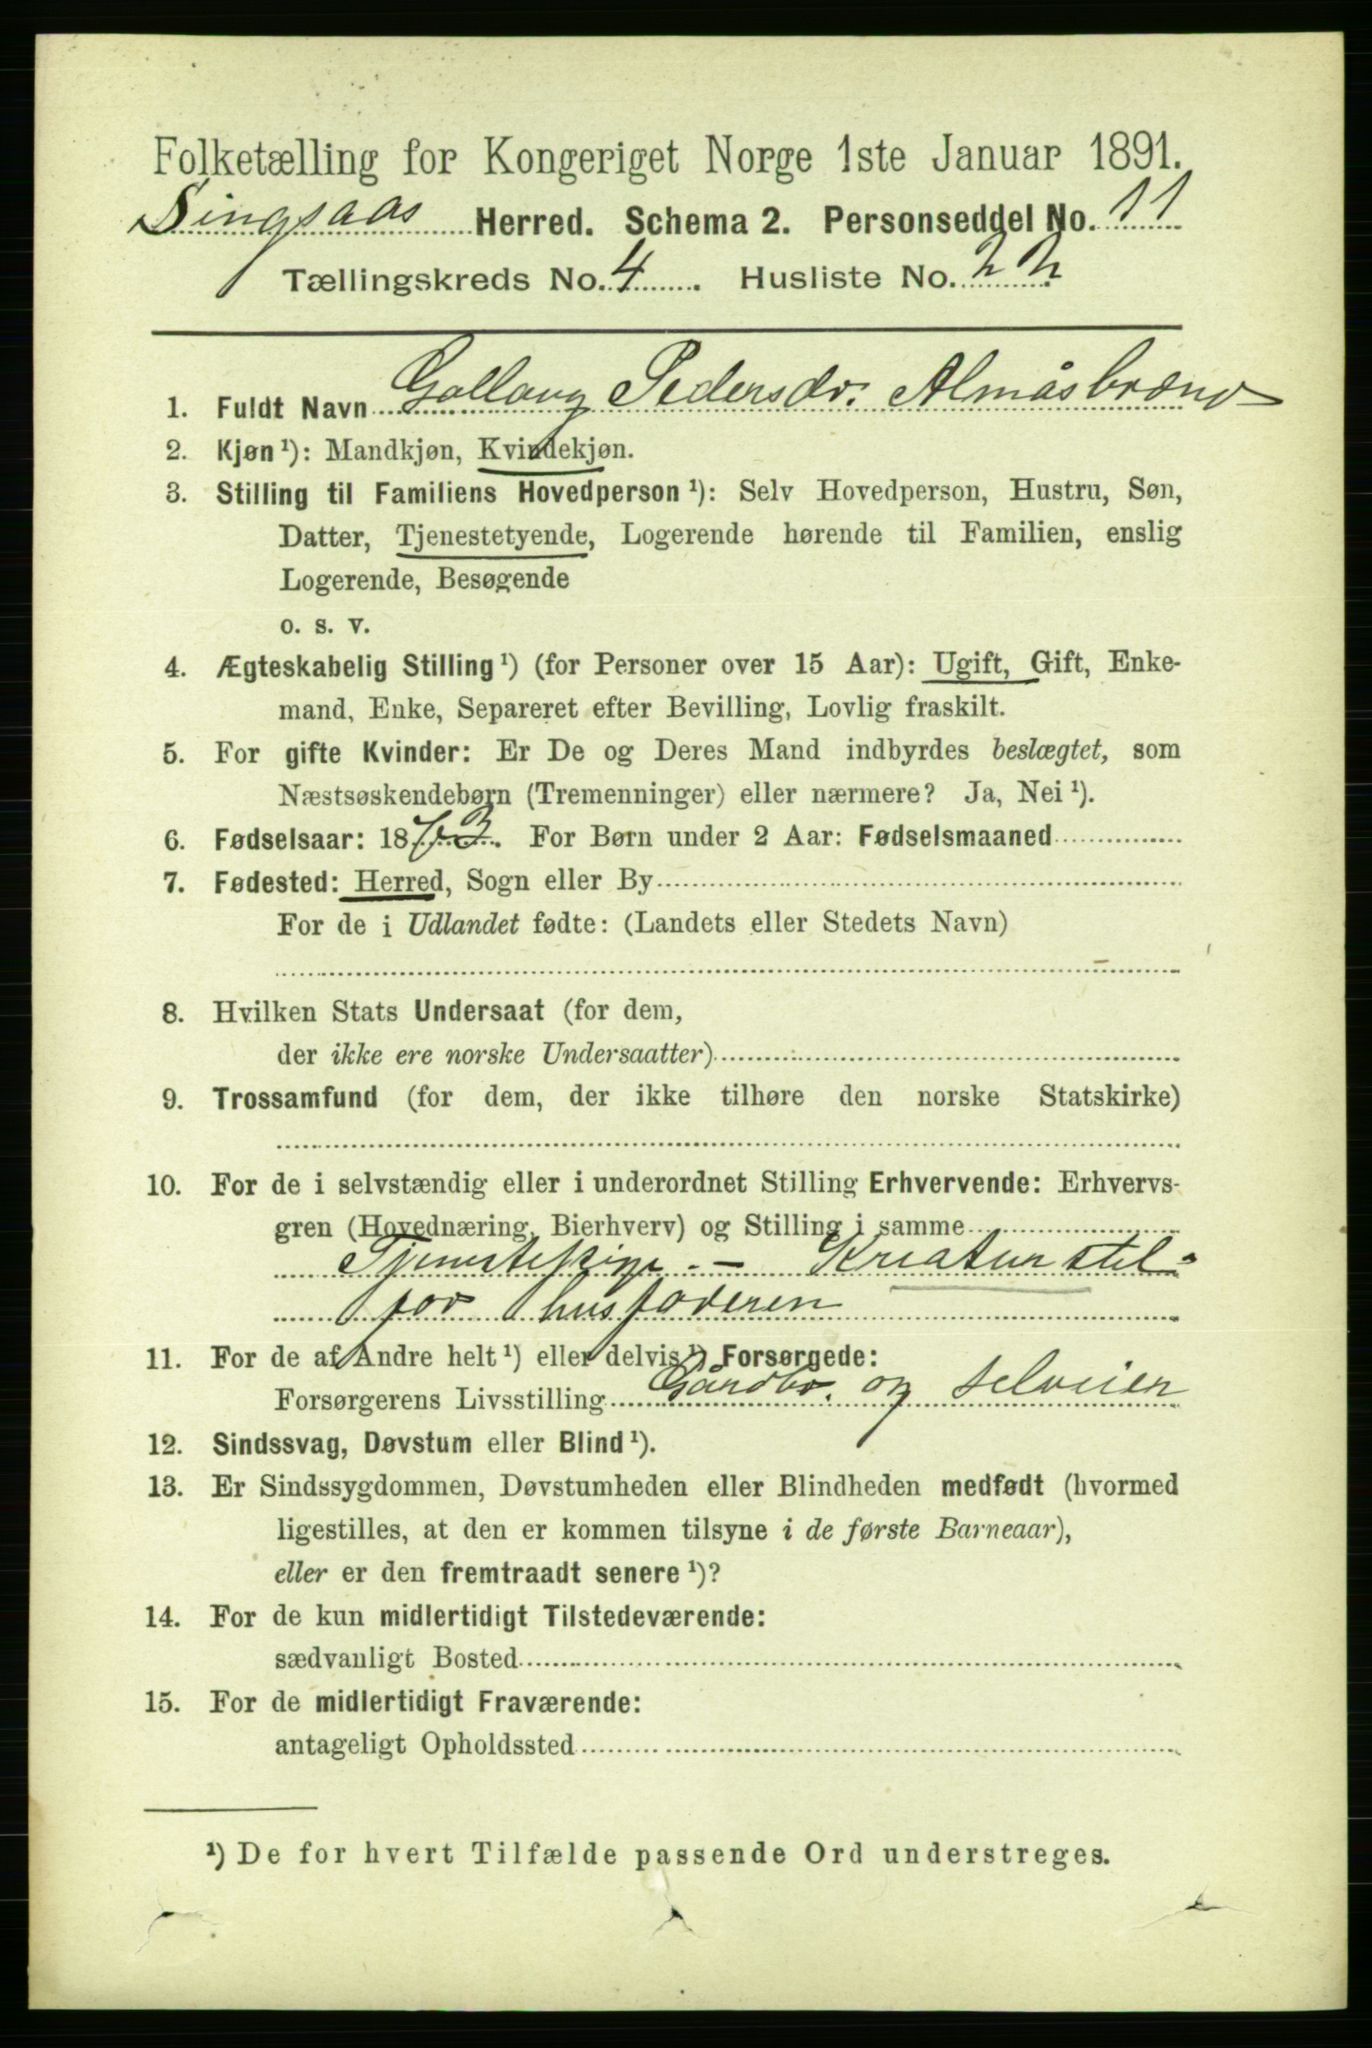 Folketælling for Kongeriget Norge 1ste Januar 1891.
Singsaas Herred. Schema 2. Personseddel No. 11
Tællingskreds No. 4. Husliste No. 22
1. Fuldt Navn Gollaug Pedersdr. Almåsbrænd
2. Kjøn ¹): Mandkjøn, Kvindekjøn.
3. Stilling til Familiens Hovedperson ¹): Selv Hovedperson, Hustru, Søn,
Datter, Tjenestetyende, Logerende hørende til Familien, enslig
Logerende, Besøgende
o. s. v.
4. Ægteskabelig Stilling ¹) (for Personer over 15 Aar): Ugift, Gift, Enke-
mand, Enke, Separeret efter Bevilling, Lovlig fraskilt.
5. For gifte Kvinder: Er De og Deres Mand indbyrdes beslægtet, som
Næstsøskendebørn (Tremenninger) eller nærmere? Ja, Nei ¹).
6. Fødselsaar: 1873. For Børn under 2 Aar: Fødselsmaaned
7. Fødested: Herred, Sogn eller By
For de i Udlandet fødte: (Landets eller Stedets Navn)
8. Hvilken Stats Undersaat (for dem,
der ikke ere norske Undersaatter)
9. Trossamfund (for dem, der ikke tilhøre den norske Statskirke)
10. For de i selvstændig eller i underordnet Stilling Erhvervende: Erhvervs-
gren (Hovednæring, Bierhverv) og Stilling i samme
Tjenestepige. – Kreaturstel
for husfaderen
11. For de af Andre helt ¹) eller delvis ¹) Forsørgede:
Forsørgerens Livsstilling Gårdbr. og selveier
12. Sindssvag, Døvstum eller Blind ¹).
13. Er Sindssygdommen, Døvstumheden eller Blindheden medfødt (hvormed
ligestilles, at den er kommen tilsyne i de første Barneaar),
eller er den fremtraadt senere ¹)?
14. For de kun midlertidigt Tilstedeværende:
sædvanligt Bosted
15. For de midlertidigt Fraværende:
antageligt Opholdssted
¹) De for hvert Tilfælde passende Ord understreges.